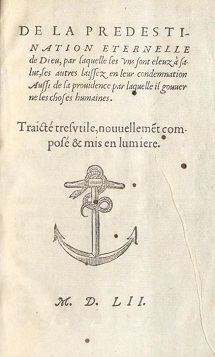 DE LA PREDESTI-
NATION ETERNELLE
de Dieu, par laquelle les vns sont eleuz à sa-
lut, les autres laissez en leur condemnation
Aussi de la prouidence par laquelle il gouuer
ne les choses humaines.
Traicté tresvtile, nouuellemẽt com-
posé & mis en lumiere.
M. D. LII.